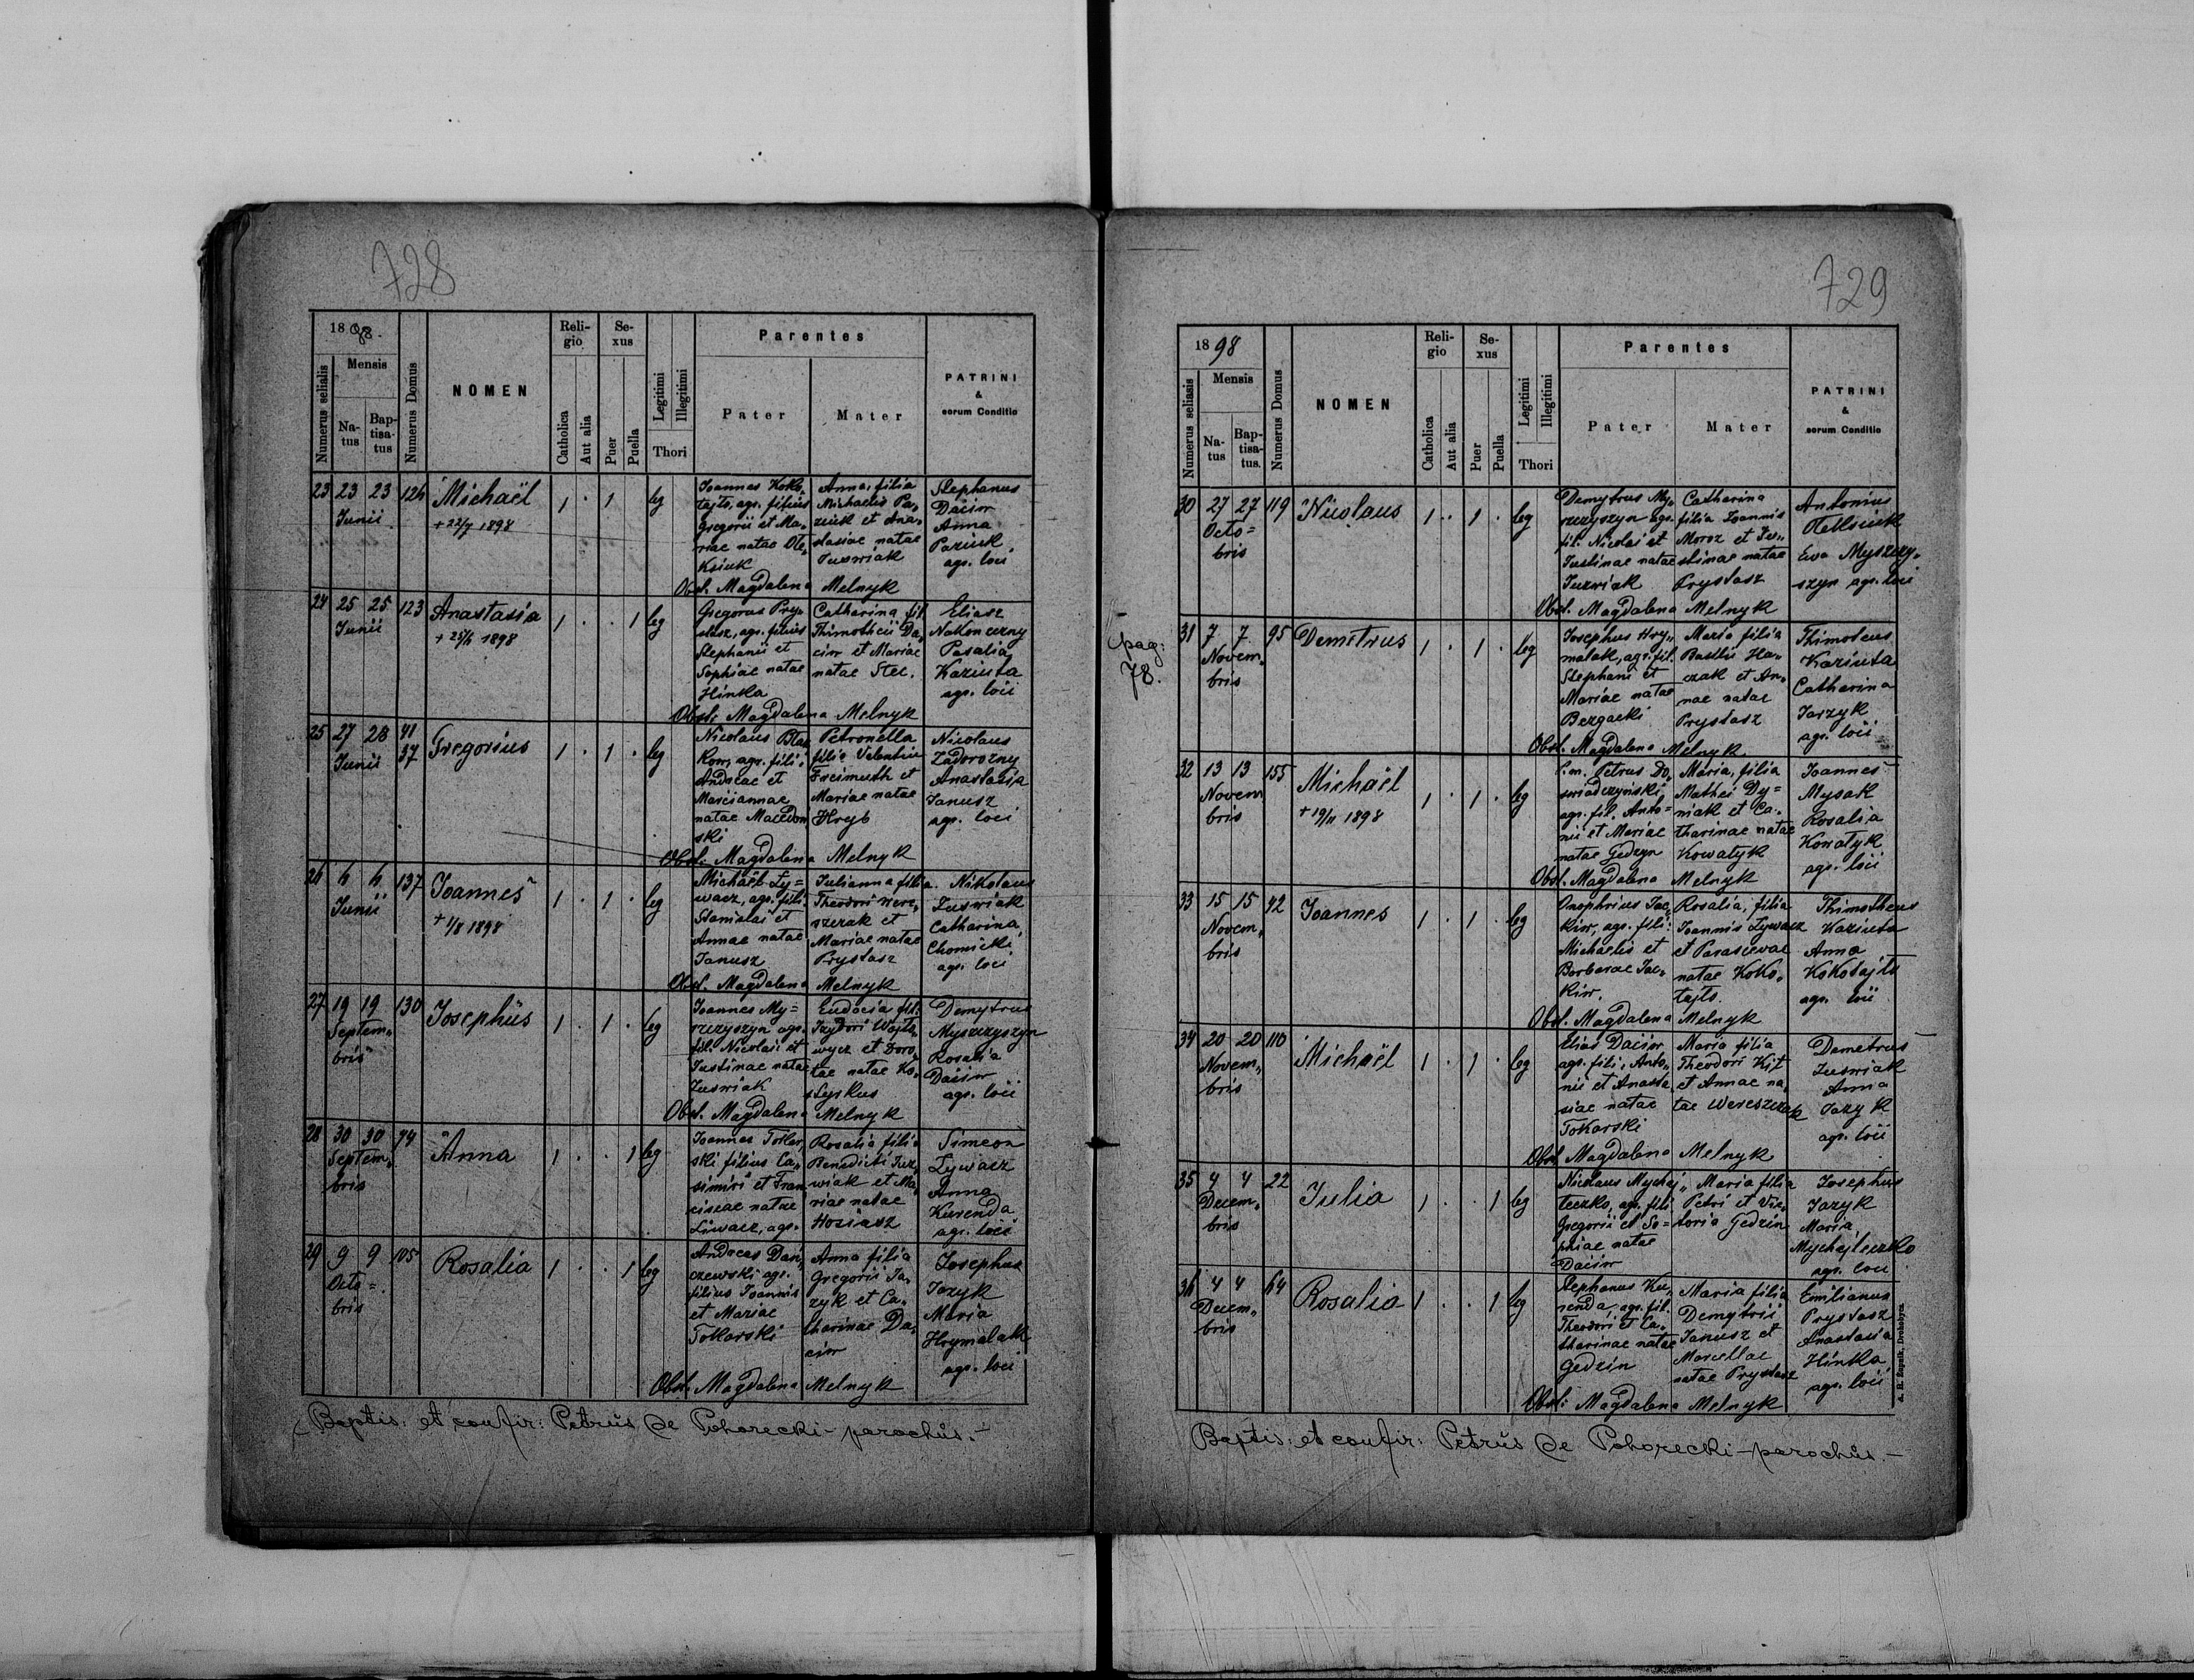 728
1898.
Numerus selialis
Mensis
Natus
Baptisatus
Numerus Domus
NOMEN
Religio
Catholica
Aut alia
Sexus
Puer
Puella
Legitimi
Illegitimi
Thori
Parentes
Pater
Mater
PATRINI
&
eorum Conditio
23 23 23 124 Michaël 1 . 1 leg
Junii
+ 22/7 1898
Joannes Koko,
tajło, agr. filius
Gregorii et Ma,
riae natae Ole,
Ksiuk
Anna, filia
Michaelis Pa,
ziuk et Ana,
stasiae natae
Juswiak
Stephanus
Daciw
Anna
Paziuk,
agr. loci
Obst. Magdalena Melnyk
24 25 25 123 Anastasia 1 . . 1 leg
Junii
1898
Gregorus Pry,
stasz, agr. filius
Stephanii et
Sophiae natae
Hinka
Catharina fil.
Thimotheii Da,
ciw et Mariae
natae Stec.
Eliasz
Nakoneczny
Rasalia
Kaziuta
agr. loci
Obst: Magdalena Melnyk
25 27 28 41
37 Gregorius 1 . 1 . leg
Junii
Nicolaus
Kow, agr. fili:
Andreae et
Marciannae
natae Macedon
ski
Petronella
filia Valentini
Freimuth et
Mariae natae
Hryb
Nicolaus
Zadorozny
Anastasia
Janusz
agr. loci
Obst: Magdalena Melnyk
26 137 Joannes 1 . 1 . leg
Junii
+ 1/8 1898
Michaël Ly=
wacz, agr. fili.
Stanislai et
Annae natae
Janusz
Julianna filia
Theodori Were,
szczak et
Mariae natae
Prystasz
Nikolaus
Juswiak
Catharina
Chomicki
agr. loci
Obst. Magdalena Melnyk
27 19 19 130 Josephus 1 . 1 . leg
Septem,
bris
Joannes My=
szczyszyn agr.
fil. Nicolai et
Justinae natae
Juswiak
Eudocia fil.
Izydori Wojto,
wycz et Doro,
tae natae Ko,
Demytrus
Myszczyszyn
Rosalia
Daciw
agr. loci
Obst. Magdalena Melnyk
28 30 30 74 Anna 1 . . 1 leg
Septem,
bris
Joannes Tokar,
ski filius Ca,
simiri et Fran,
ciscae natae
Liwacz, agr.
Rosalia filia
Benedicti Juz,
wiak et Ma,
riae natae
Hosiasz
Simeon
Lywacz
Anna
Kurenda
agr. loci
29 9 9 105 Rosalia 1 . . 1 leg
Octo=
bris
Andreas Dani,
czewski agr.
filius Joannis
et Mariae
Tokarski
Anna filia
Gregorii Ja,
zyk et Ca,
tharinae Da,
ciw
Josephus
Jazyk
Maria
Hrymalak
agr. loci
Obst. Magdalena Melnyk
Baptis: et confir: Petrus de Pohorecki - parochus. -
729
1898
Numerus seliasis
Mensis
Natus
Baptisatus.
Numerus Domus
NOMEN
Religio
Catholica
Aut alia
Sexus
Puer
Puella
Legitimi
Illegitimi
Thori
Parentes
Pater
Mater
PATRINI
&
eorum Conditio
30 27 27 119 Nicolaus 1 . 1 . leg
Octo=
bris
Demytrus My,
szczyszyn agr.
fil. Nicolai et
Justinae natae
Juzwiak
Catharina
filia Joannis
Moroz et Ju,
stinae natae
Prystasz
Antonius
Oleksiuk
Ewa Myszczy,
szyn agr. loci
Obst. Magdalena Melnyk
pag:
78.
31 7 7 95 Demetrus 1 . 1 . leg
Novem,
bris
Josephus Hry,
malak, agr. fil.
Stephani et
Mariae natae
Bezgacki
Maria filia
Basilii Ha,
czak et An,
nae natae
Prystasz
Thimoteus
Kaziuta
Catharina
Jazyk
agr. loci
Obst. Magdalena Melnyk
32 13 13 155 Michaël 1 . 1 . leg
Novem
bris
+ 19/11 1898
P.m. Petrus Do,
swiadczynski,
agr. fil. Anto=
nii et Mariae
natae Gedzyn
Maria, filia
Mathei Dy=
niak et Ca,
tharinae natae
Kowatyk
Joannes
Mysak
Rosalia
Kowatyk
agr. loci
Obst. Magdalena Melnyk
33 15 15 42 Joannes 1 . 1 . leg
Novem,
bris
Onophrius Jac,
kiw, agr. fili:
Michaelis et
Barbarae Jac,
kiw.
Rosalia, filia
Joannis Lywacz
et Parascevae
natae Koko,
tajło.
Thimotheus
Kaziuta
Anna
Kokotajło
agr. loci
Obst. Magdalena Melnyk
34 20 20 110 Michaël 1 . 1 . leg
Novem,
bris
Elias Daciw
agr. fili, Anto,
nii et Anasta,
siae natae
Tokarski
Maria filia
Theodori Kit
et Annae na
tae Wereszczak
Demetrus
Juswiak
Anna
Jazyk
agr. loci
Obst. Magdalena Melnyk
35 4 4 22 Julia 1 . . 1 leg
Decem,
bris
Nicolaus Mychaj,
leczko, agr. fili.
Gregorii et So=
phiae natae
Daciw
Maria filia
Petri et Vic,
toria Gedzin
Josephus
Jazyk
Maria
Mychajleczko
agr. loci
36 4 4 64 Rosalia 1 . . 1 leg
Decem,
bris
Stephanus Ku,
renda, agr. fil.
Theodori et Ca,
tharinae natae
Gedzin
Maria filia
Demytrii
Janusz et
Marcellae
natae Prystasz
Emilianus
Prystasz
Anastasia
Hinka
agr. loci
Obst: Magdalena Melnyk
Baptis: et confir: Petrus de Pohorecki - parochus. -